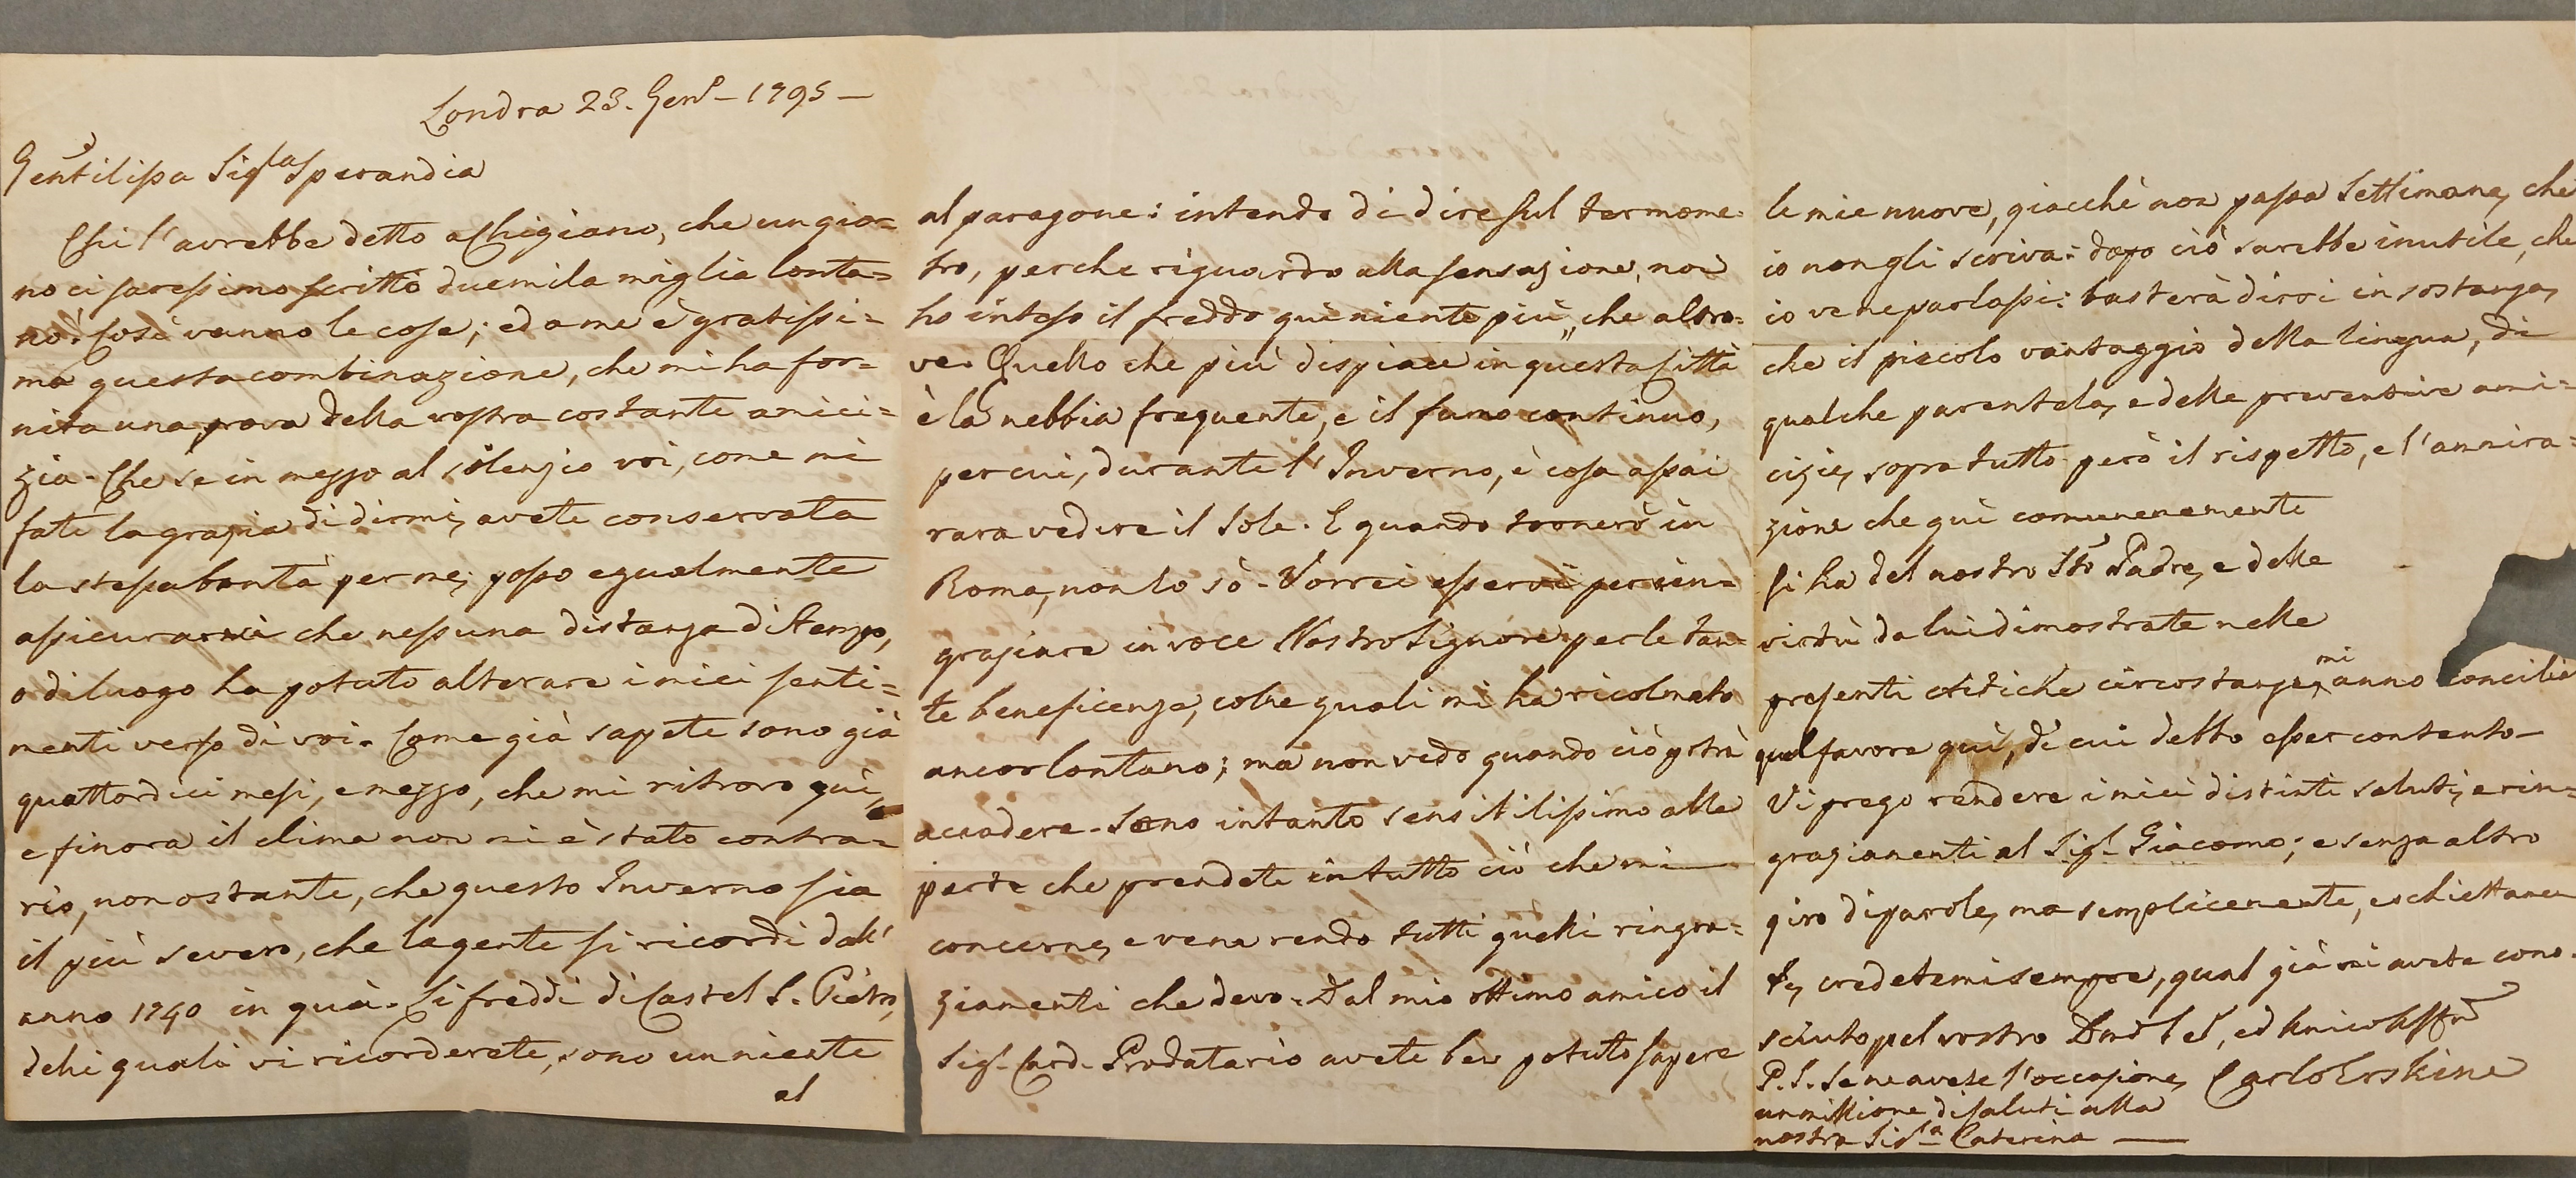 Londra 23. Gen.o - 1795 -
Gentilissa Sig.la Sperandia
Chi l'avrebbe detto a Chigiano, che un gior=
no ci saressimo scritto duemila miglia lonta=
no! Così vanno le cose; ed a me è gratissi=
ma questa combinazione, che mi ha for=
nita una prova della vostra costante amici=
zia. Che se in mezzo al silenzio voi, come mi
fate la grazia di dirmi, avete conservata
la stessa bontà per me, posso egualmente
assicurarvi che nessuna distanza di tempo,
o di luogo ha potuto alterare i miei senti=
menti verso di voi. Come già sapete sono già
quattordici mesi, e mezzo, che mi ritrovo quì,
e finora il clima non mi è stato contra=
rio, nonostante, che questo Inverno sia
il più severo, che la gente si ricordi dall'
anno 1740 in quà. Li freddi di Castel S. Pietro,
delli quali vi ricorderete, sono un niente
al
al paragone: intendo di dire sul termome=
tro, perche riguardo alla sensazione, non
ho inteso il freddo quì niente più, che altro=
ve. Quello che più dispiace in questa Città
è la nebbia frequente, e il fumo continuo,
per cui, durante l'Inverno, è cosa assai
rara vedere il Sole. E quando tornerò in
Roma, non lo sò. Vorrei esservi per rin=
graziare in voce Nostro Signore per le tan=
te beneficenze, colle quali mi ha ricolmato
ancor lontano; ma non vedo quando ciò potrà
accadere. Sono intanto sensibilissimo alla
parte che prendete in tutto ciò che mi
concerne, e ve ne rendo tutti quelli ringra=
ziamenti che devo. Dal mio ottimo amico il
Sig.r Card. Prodatario avete ben potuto sapere
le mie nuove, giacchè non passa Settimana, che
io non gli scriva: dopo ciò sarebbe inutile, che
io ve ne parlassi: basterà dirvi in sostanza,
che il piccolo vantaggio della lingua, di
qualche parentela, e delle preventive ami=
cizie, sopra tutto però il rispetto, e l'ammira=
zione che quì comunenemente
si ha del nostro Sto Padre, e delle
virtù da lui dimostrate nelle
presenti critiche circostanze, mi anno concilia
quel favore quì, di cui debbo esser contento -
Vi prego rendere i miei distinti saluti, e rin=
graziamenti al Sig.r Giacomo; e senza altro
giro di parole, ma semplicemente, e schiettamen
te, credetemi sempre, qual già mi avete cono=
sciuto pel vostro ed
P.S. Se ne avete l'occasione, Carlo Erskine
un millione di saluti alla
nostra Sig.ra Caterina —